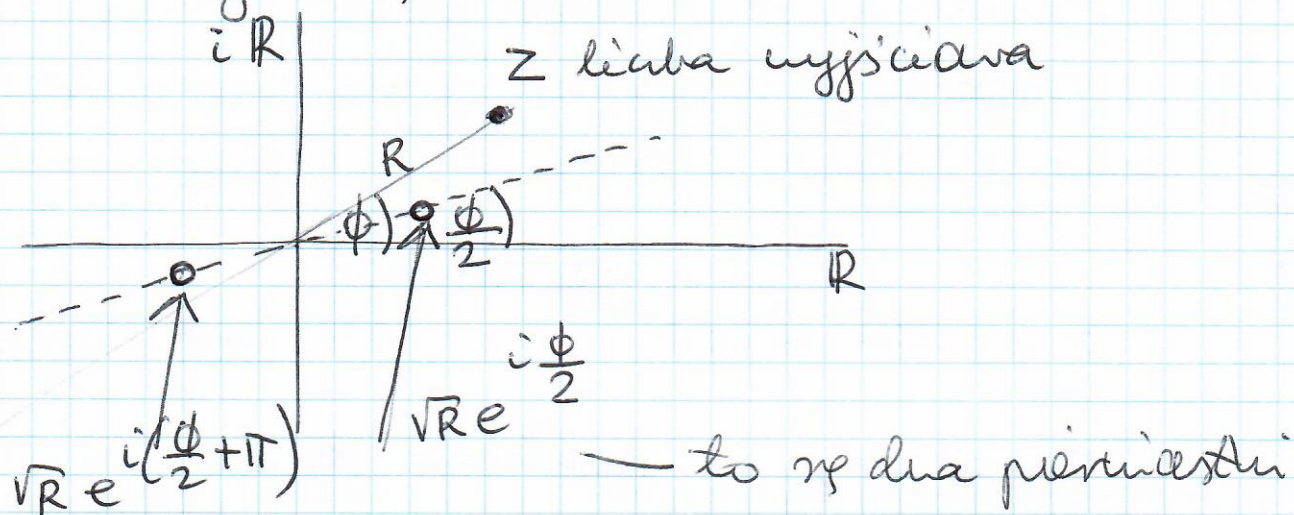 iℝ
z liczba wyjściowa
R
ϕ) ϕ/2)
ℝ
√R e^{i ϕ/2}
√R e^{i(ϕ/2+π)}
— to są dwa pierwiastki